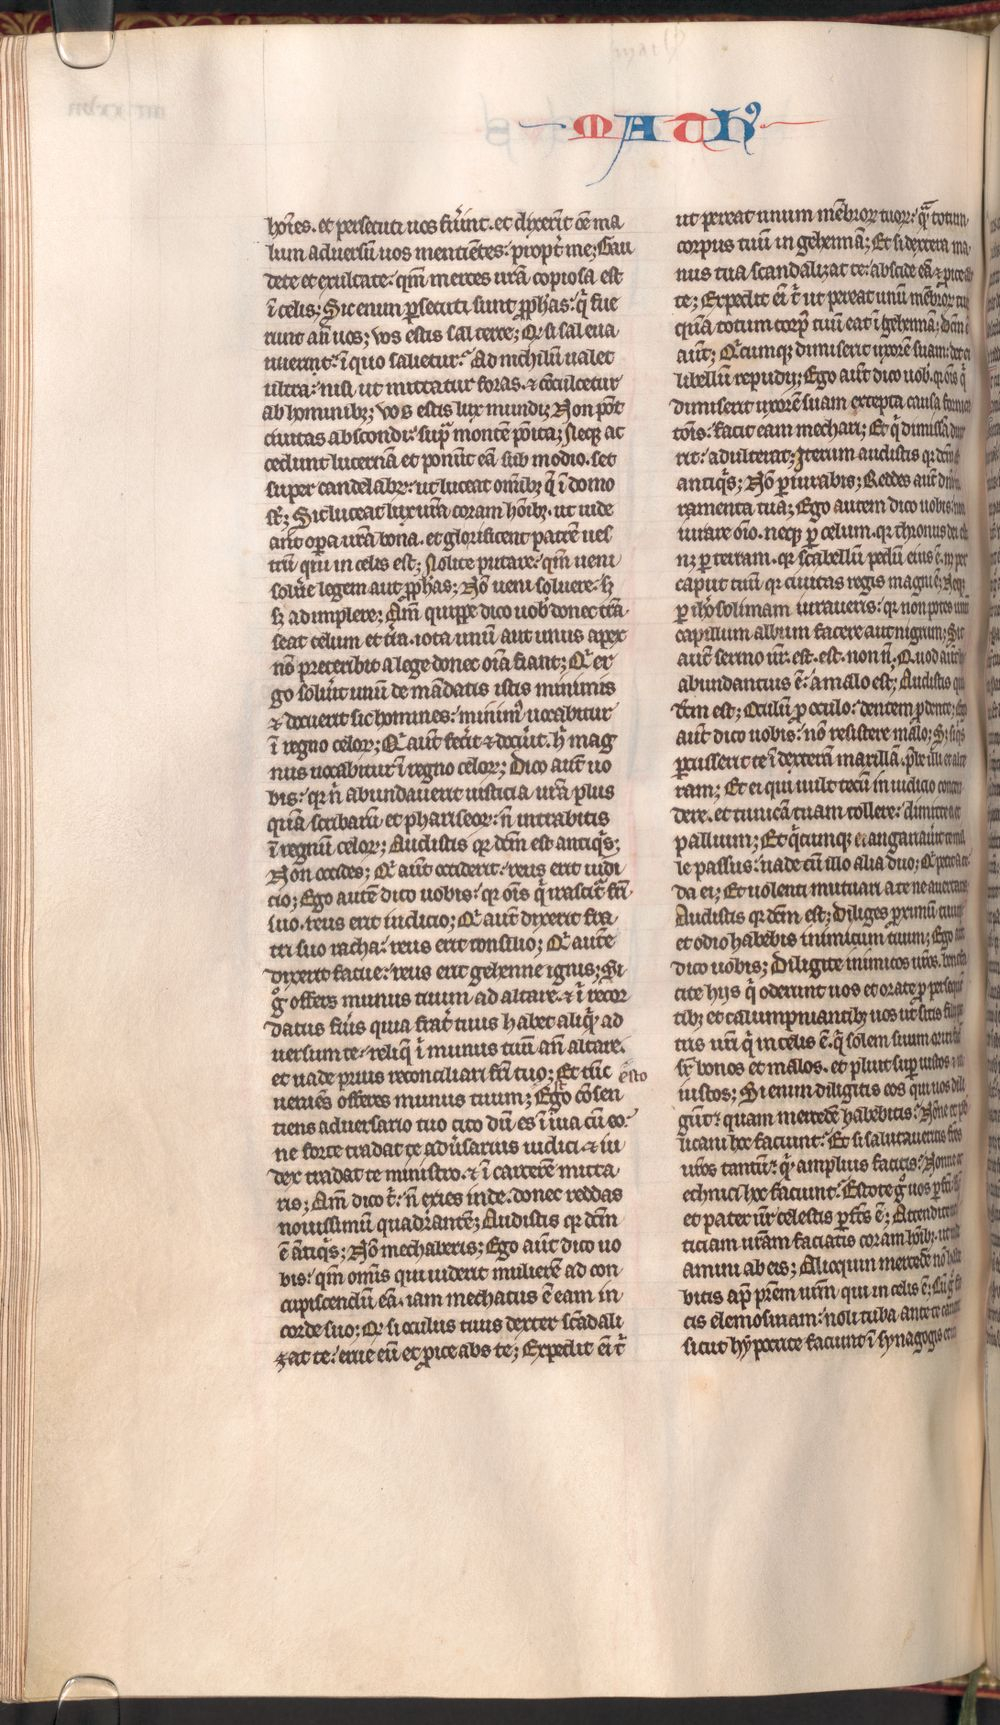 MATH
hoı̄es. et persecuti uos fu̓int. et dixerīt oē ma
lum aduersū uos mentiētes: propt̓ me; Gau
dete et exultate: qm̄ merces ur̄a copiosa est
ī celis; Sic enim ꝑsecuti sunt ꝓphas: q̓ fue
runt an̄ uos; vos estis sal terre; Qd̓ si sal eua
nuerit: ī quo salietur: Ad nichilū ualet
ultra: nisi ut mittatur foras. ⁊ cōculcetur
ab hominibꝫ; vos estis lux mundi; Non pōt
ciuitas abscondi: supra montē poīta; Neqꝫ ac
cedunt lucernā et ponūt eā sub modio. set
super candelabr̄: ut luceat omībꝫ q̓ ī domo
st̄; Sic luceat lux ur̄a coram hoı̄bꝫ. ut uide
ant opa ur̄a bona. et glorificent patrē ues
trū qui in celis est; Nolite putare: qm̄ ueni
solu̓e legem aut ꝓphas; Nō ueni soluere: sꝫ
sꝫ adimplere; Am̄ quippe dico uob̓ donec trā
seat celum et tr̄a. iota unū aut unus apex
nō preteribit a lege donec oīa fiant; Qi̓ er
go solu̓it unū de mādatis istis minimis
⁊ docuerit sic homines: minim᷒ uocabitur
ī regno celoꝝ; Qi̓ aūt fec̓it ⁊ docu̓it. h̓ mag
nus uocabitur ī regno celoꝝ; Dico aūt uo
bis: qꝛ n̄ abundauerit iusticia ur̄a plus
quā scribarū et phariseoꝝ: n̄ intrabitis
ī regnū celoꝝ; Audistis qꝛ dc̄m est antiq̓s;
Non occides; Qi̓ aūt occiderit: reus erit iudi
cio; Ego autē dico uobis: qꝛ oīs q̓ irascit̓ fr̄i
suo. reus erit iudicio; Qi̓ aūt dixerit fra
tri suo racha: reus erit consilio; Qi̓ autē
dixerit fatue: reus erit gehenne ignis; Si
g̊ offers munus tuum ad altare. ⁊ ī recor
datus fu̓is quia frat̓ tuus habet aliq̓ ad
uersum te: relinq̓ ī munus tuū an̄ altare.
et uade prius reconciliari fr̄i tuo; Et tūc
ueniēs offeres munus tuum; Ego cōsen
esto
tiens aduersario tuo cito dū es ī uia cū eo:
ne forte tradat te adu̓sarius iudici. ⁊ iu
dex tradat te ministro. ⁊ ī carcerē mitta
ris; Am̄ dico t̓: n̄ exies inde. donec reddas
nouissimū quadrantē; Audistis qꝛ dc̄m
ē ātiq̓s; Nō mechaberis; Ego aūt dico uo
bis: qm̄ omīs qui uiderit mulierē ad con
cupiscendū eā. iam mechatus ē eam in
corde suo; Qd̓ si oculus tuus dexter scādali
zat te: erue eū et ꝓice abs te; Expedit ei t̓
ut pereat unum mēbroꝝ tuoꝝ: q̓ totum
corpus tuū in gehennā; Et si dextera ma
nus tua scandalizat te: abscide eā ⁊ ꝓice
te; Expedit ei t̓ ut pereat unū mēbroꝝ
quā totum corp᷒ tuū eat ī gehennā;
aūt; Qi̓cumqꝫ dimiserit uxorē suam:
libellū repudii; Ego aūt dico uob̓. qꝛ oīs q̓
dimiserit uxorē suam excepta causa fornica
tōis: facit eam mechari; Et q̓ dimissā
rit: adulterat; Iterum audistis qꝛ dc̄m
antiq̓s; Nō ꝑiurabis; Reddes aūt
ramenta tua; Ego autem dico uobis:
iurare oīo. neqꝫ ꝑ celum. qꝛ thronus dei
ꝑ terram. qꝛ scabellū pedū eius ē:
caput tuū qꝛ ciuitas regis magni ē; Neqꝫ
ꝑ ih̓osolimam iuraueris: qꝛ non potes
capillum album facere aut nigrum; Sit
aūt sermo ur̄. est. est. non n̄. Quod
abundantius ē: a malo est; Audistis
dc̄m est; Oculū ꝓ oculo: dentem ꝓ dente;
aūt dico uobis: nō resistere malo;
ꝑcusserit te ī dexterā maxillā.
ram; Et ei qui uult tecū in iudicio conten
dere. et tunicā tuam tollere: dimitte
pallium; Et q̓cumqꝫ te angariauit
le passus: uade cū illo alia duo;
da ei; Et uolenti mutuari a te ne auertaris
Audistis qꝛ dc̄m est; Diliges ꝓximū tuum
et odio habebis inimicum tuum; Ego
dico uobis; Diligite inimicos ur̄os.
cite hijs q̓ oderunt uos et orate ꝓ
tibꝫ et calumpniantibꝫ uos ut sitis
tris ur̄i q̓ in celis ē. q̓ solem suum
sr̄ bonos et malos. et pluit sup iustos
iustos; Si enim diligitis eos qui uos
gūt: quam mercedē habebitis:
licani hoc faciunt: Et si salutaueritis
ur̄os tantū: q̓ amplius facitis: Nonne
ethnici hoc faciunt: Estote g̊ uos
et pater ur̄ celestis ꝑfcs̄ ē; Attendite
ticiam ur̄am faciatis coram hoı̄bꝫ.
amini ab eis; Alioquin mercedē nō
bitis ap̄ pr̄em ur̄m qui in celis ē;
cis elemosinam: noli tuba ante te
sicut hypocrite faciunt ī synagogis